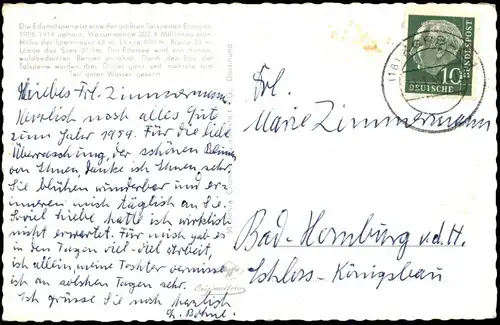 Die Edertalsperre ist eine der größten Talsperren Europas,
1908-1914 gebaut. Wassermenge 202,4 Millionen cbm
Höhe der Sperrmauer 48 m, Länge 400 m, Breite
Länge des Sees 27 km. Der Edersee wird von hohen
waldbedeckten Bergen umrahmt. Durch den Bau der
Talsperre wurden drei Dörfer ganz und mehrere zum
Teil unter Wasser gesetzt.
Liebes Frl. Zimmermann.
Herzlich noch alles Gute
zum Jahre 1959. Für die liebe
Überraschung, der schönen Blumen
von Ihnen, danke ich Ihnen sehr.
Sie blühen wunderbar und er-
inneren mich täglich an Sie.
Soviel Liebe hatte ich wirklich
nicht erwartet. Für mich gab es
in den Tagen viel-viel Arbeit,
ist allein, meine Tochter vermisse
ich an solchen Tagen sehr.
Ich grüsse Sie noch herzlich
Dortmund
Agfa
Originalfoto
(16)
10
DEUTSCHE
BUNDESPOST
Frl.
Marie Zimmermann
Bad-Homburg v.d.H.
Schloss-Königsbau